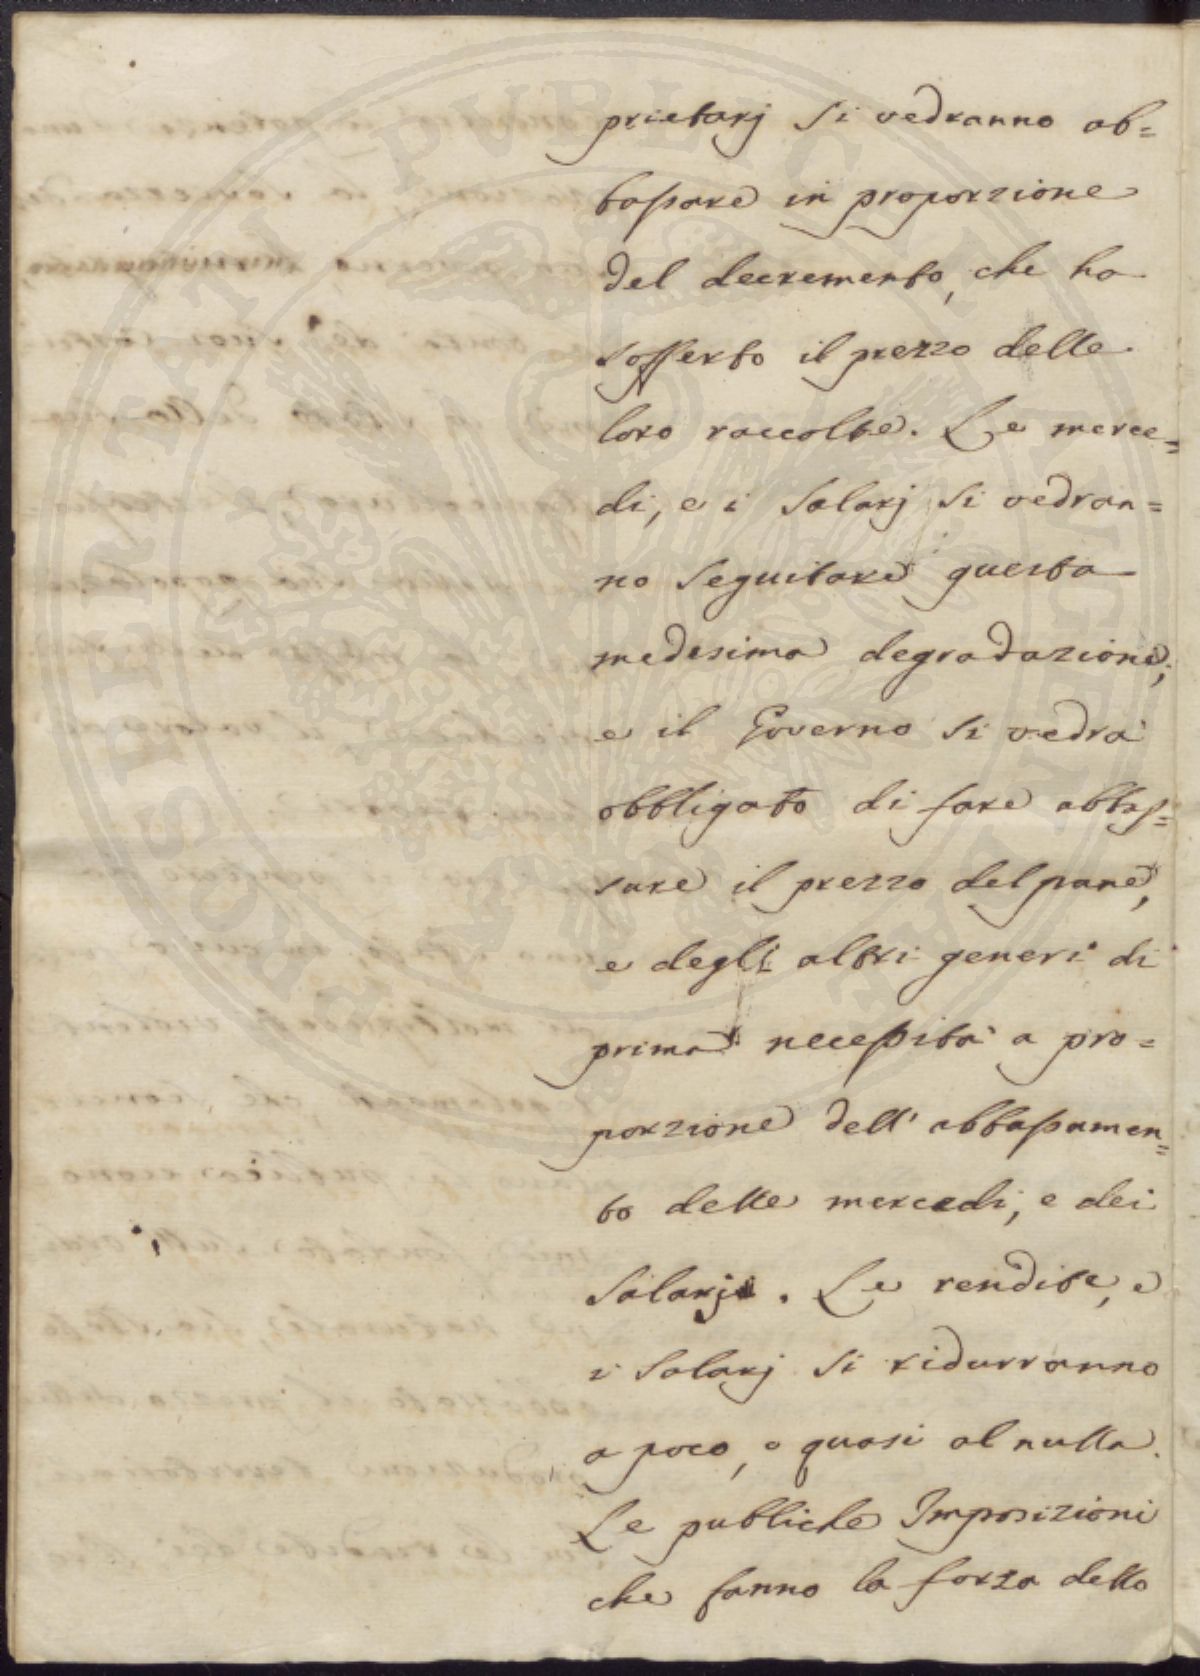 prietarj si vedranno ab=
bassare in proporzione
del decremento, che ha
sofferto il prezzo delle
loro raccolte. Le merce=
di, e i Salarj si vedran=
no seguitare questa
medesima degradazione,
e il Governo si vedrà
obbligato di fare abbas=
sare il prezzo del pane,
e degli altri generi di
prima necessità a pro=
porzione dell' abbassamen=
to delle mercedi, e dei
Salarj. Le rendite, e
i Salarj si ridurranno
a poco, o quasi al nulla.
Le publiche Imposizioni
che fanno la forza dello